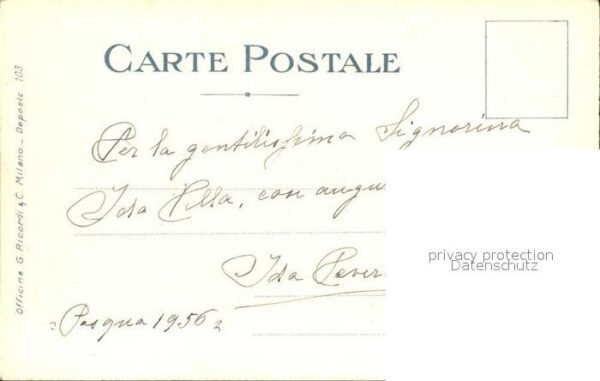 CARTE POSTALE
Per la gentilissima Signorina
Ida Villa, con augu
Ida Pever
Pasqua 1956
Officine G. Ricordi & C. Milano - Deposto 103
privacy protection
Datenschutz